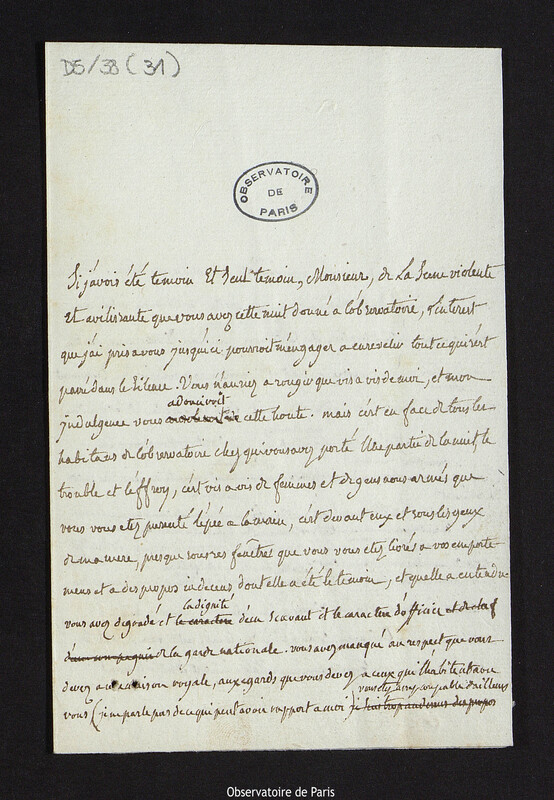 D5/38 (31)
OBSERVATOIRE
DE
PARIS
Si j'avois été temoin Et seul temoin, Monsieur, de La Scene violente
Et avilissante que vous avez cette nuit donné a l'observatoire, l'interest
que j'ai pris a vous jusqu'ici pourroit m'engager a ensevelir tout ce qui s'est
passé dans le silence. Vous n'auriez a rougir que vis a vis de moi, et mon
adouciroit
indulgence vous cette honte. mais c'est en face de tous les
habitans de l'observatoire chez qui vous avez porté Une partie de la nuit le
trouble et l'effroy, c'est vis a vis de femmes et de gens non armés que
vous vous etes presenté l'épée a la main, c'est devant eux et sous les yeux
de ma mere, presque sous ses fenêtres que vous vous etes livré a vos emporte-
mens et a des propos indecens dont elle a été le temoin, et qu'elle a entendu-
la dignité
vous avez degradé et le caractere d'un Scavant et le caractere d'officier et de chef
d'une compagnie de la garde nationale. vous avez manqué au respect que vous
devez a une maison royale, aux egards que vous devez a ceux qui l'habitent avec
vous etes assez coupable d'ailleurs
vous (je ne parle pas de ce qui peut avoir rapport a moi) je suis trop au dessus des propos
Observatoire de Paris